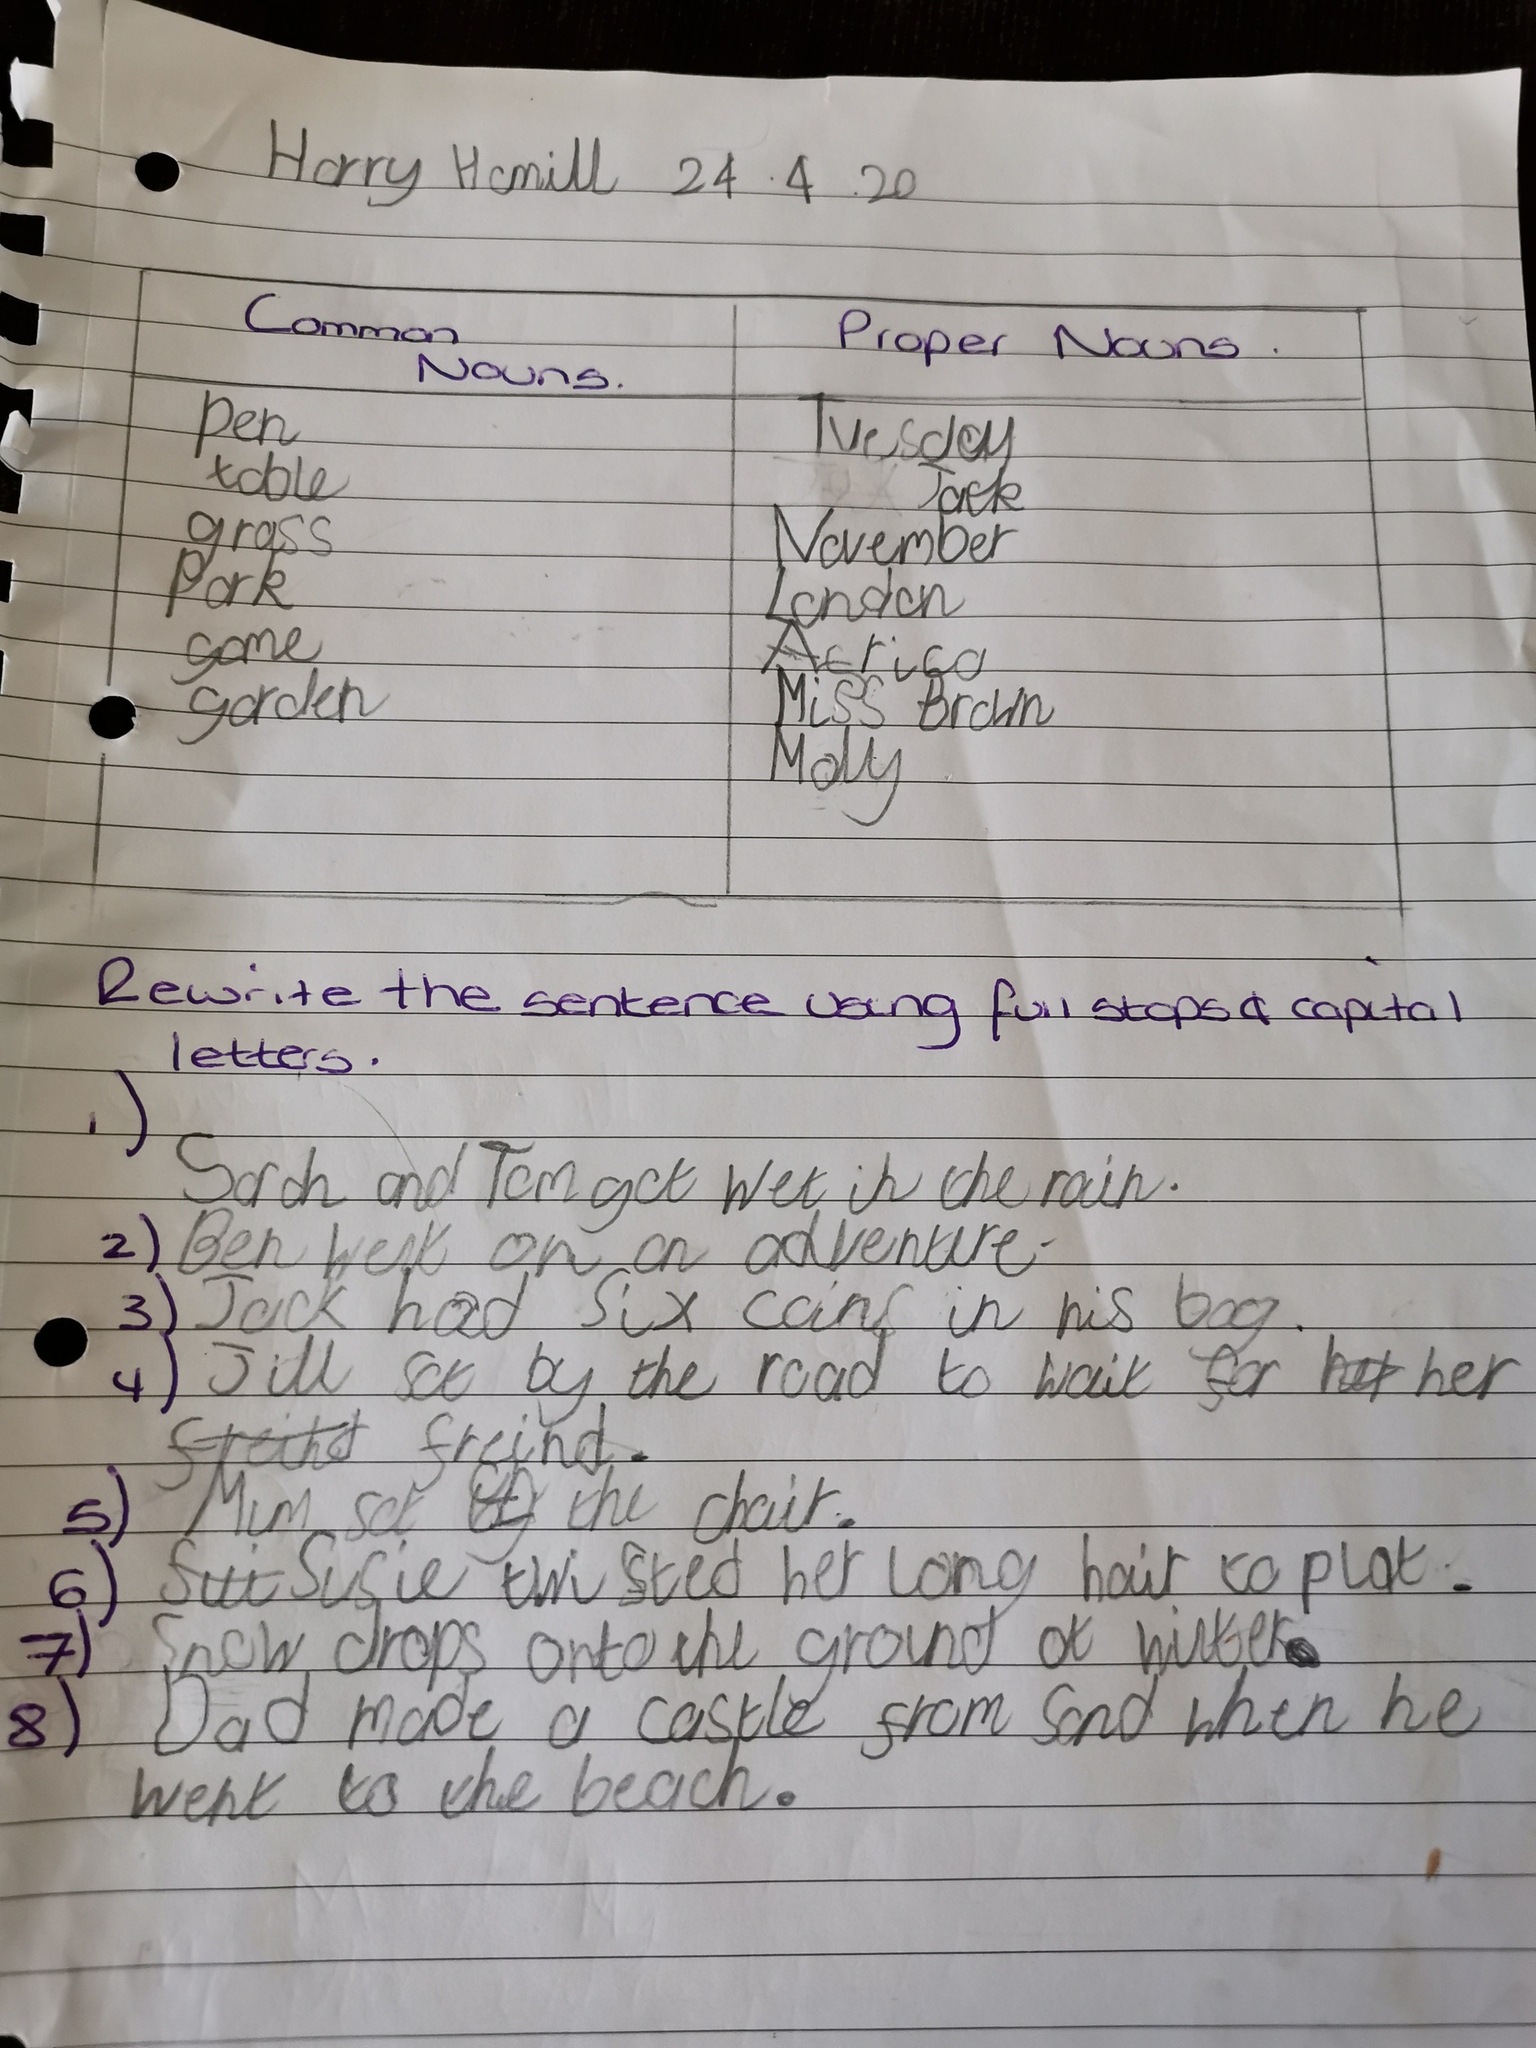 Harry Hamill 24.4.20
Common Nouns.
Proper Nouns.
pen
table
grass
Park
game
garden
Tuesday
Jack
November
London
Africa
Miss Brown
Molly
Rewrite the sentence using full stops & capital
letters.
1)
Sarah and Tom got wet in the rain.
2) Ben went on an adventure.
3) Jack had six coins in his bag.
4) Jill sat by the road to wait for her
freind.
5) Mum sat the chair.
6) Susie twisted her long hair to plat.
7) Snow drops onto the ground at winter.
8) Dad made a castle from sand when he
went to the beach.